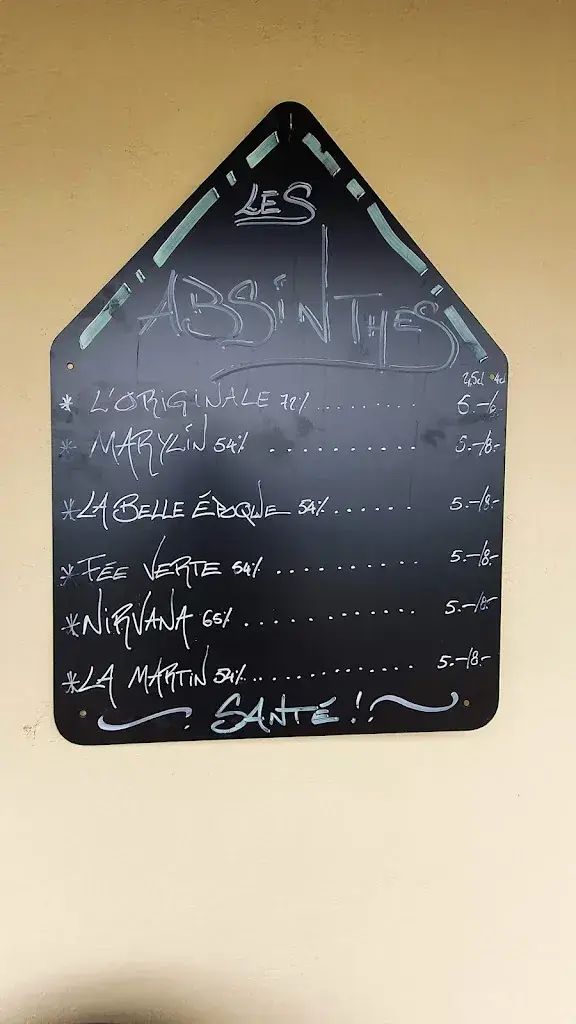 LES
ABSINTHES
2,5cl 4cl
* L'ORIGINALE 72% .......... 
* MARYLIN 54% .......... 5.-/8.-
* LA BELLE ÉPOQUE 54% ....... 5.-/8.-
* FÉE VERTE 54% .......... 5.-/8.-
* NIRVANA 65% ............ 5.-/8.-
* LA MARTIN 54% ............. 5.-/8.-
SANTÉ !